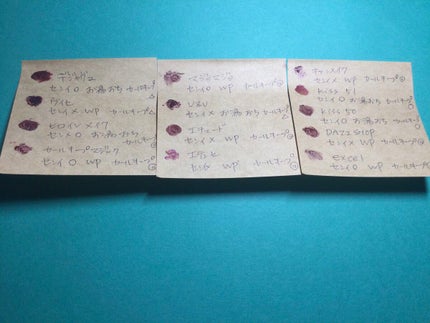 デジャヴュ
センイ〇 お湯おち カールキープ△
ダイセ
センイ× WP カールキープ△
ヒロインメイク
センイ〇 お湯おち カールキープ
カールキープマジック
センイ〇 WP カールキープ◎
マジョマジョ
センイ〇 WP カールキープ
UZU
センイ× お湯おち カールキープ
エテュード
センイ× WP カールキープ
エテュセ
センイ× WP カールキープ
キャンメイク
センイ× WP カールキープ◎
Kiss 51
センイ〇 お湯おち カールキープ
Kiss 50
センイ〇 お湯おち カールキープ
DAZZSHOP
センイ× WP カールキープ
excel
センイ〇 WP カールキープ